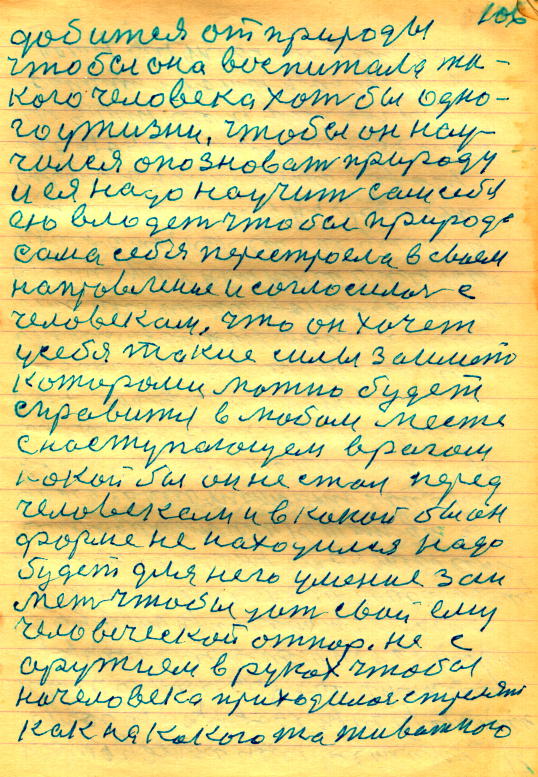 106
добится от природы
чтобы она воспитала та-
кого человека хот бы одно-
го ужизни, чтобы он нау-
чился опозноват природу
и ея надо научит сам себя
ею владет чтобы природа
сама себя перестроела в своем
направление и согласилас с
человекам, что он хочет
у себя такие силы заимет
которами можно будет
справится в любом месте
с наступающем врагом
кокой бы он не стал перед
человеком и в какой бы он
форме не находился надо
будет для него умение заи
мет чтобы дат свой ему
человеческой отпор. не с
оружием в руках чтобы
на человека приходилос стрелят
как на какого та животного